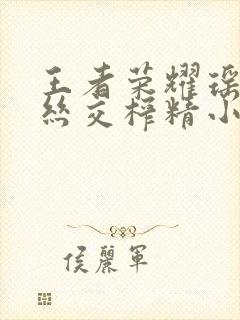 王者荣耀瑶
丝交榨精小
侯丽军